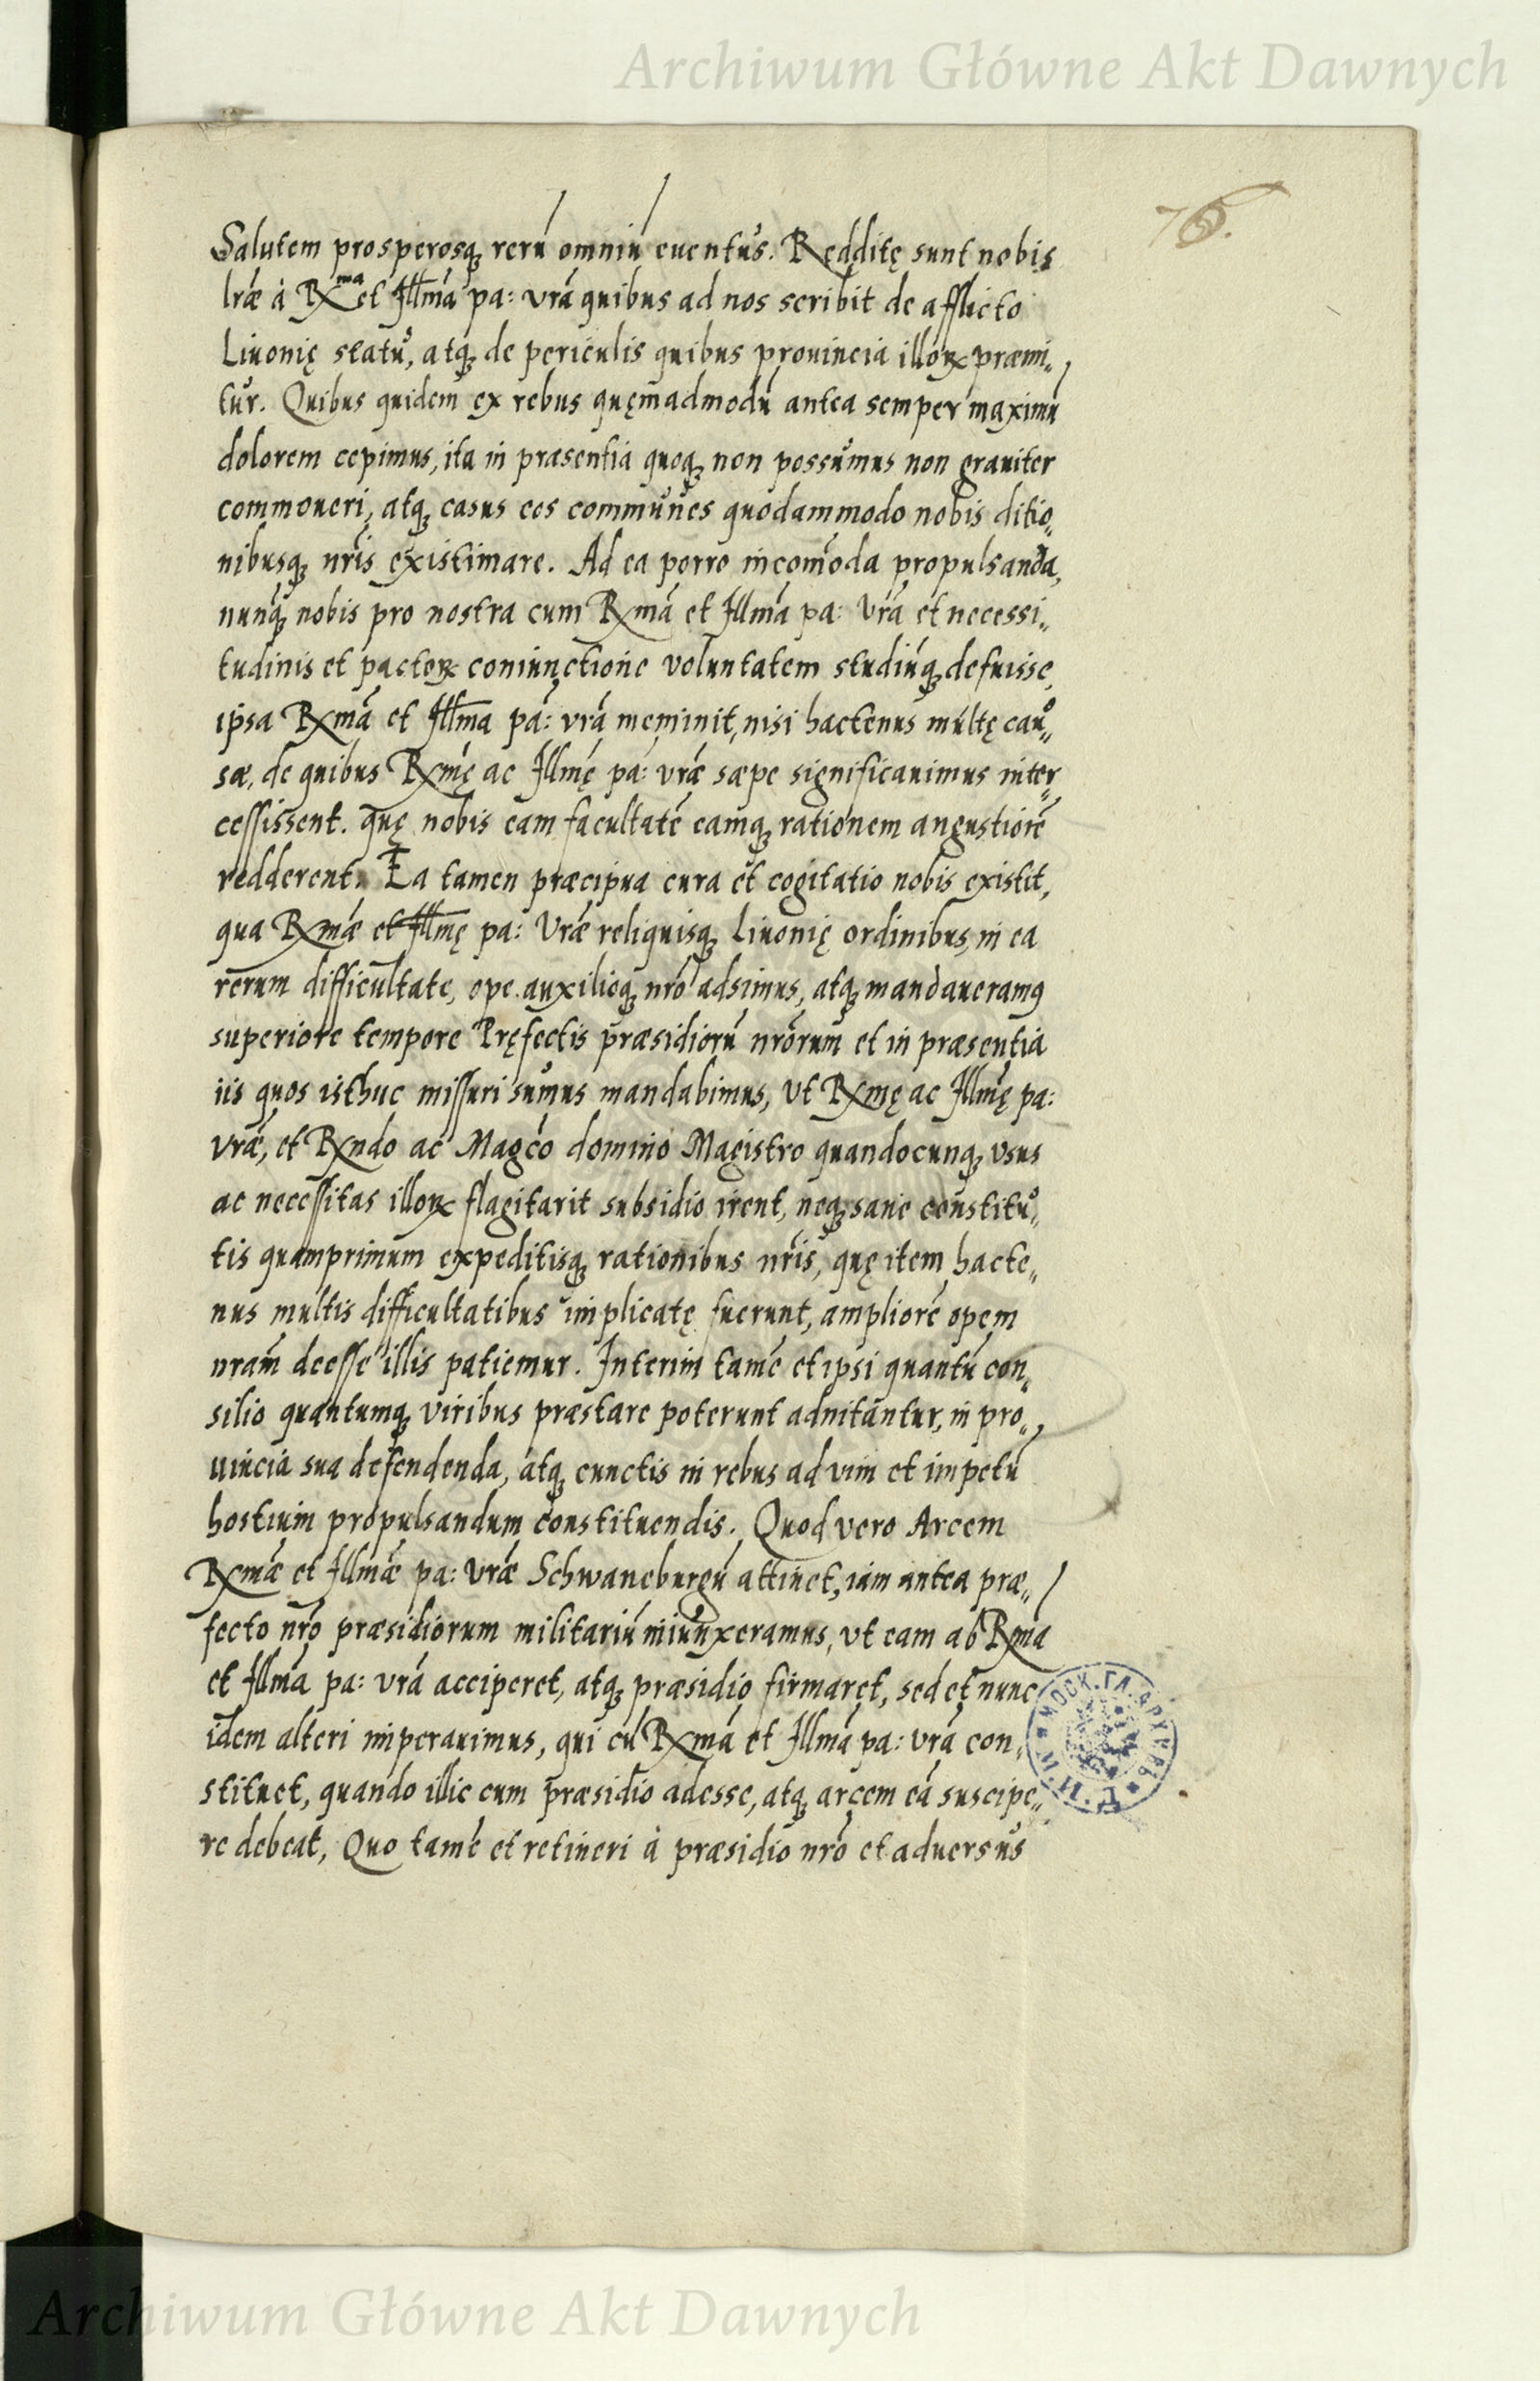 Archiwum Główne Akt Dawnych
76.
Salutem prosperosq₃ rerū omniū euentus. Redditę sunt nobis
lrǽ à Rxma et Illmá pa: vrá quibus ad nos scribit de afflicto
Liuonię statu, atq₃ de periculis quibus prouincia illorꝝ præmi„
tur. Quibus quidem ex rebus quęmadmodū antea semper maximū
dolorem cepimus, ita in præsentia quoq₃ non possumus non grauiter
commoueri, atq₃ casus eos communes quodammodo nobis ditio„
nibusq₃ nr̃is existimare. Ad ea porro incom̃oda propulsanda,
nunq̃₃ nobis pro nostra cum Rxmá et Illmá pa: Vrá et necessi„
tudinis et pactorꝝ coniunctione voluntatem studiūq₃ defuisse,
ipsa Rxmá et Illma pa: vrá meminit, nisi hactenus multę cau„
sæ, de quibus Rxmę ac Illmę pa: vræ sæpe significauimus inter„
cessissent. quę nobis eam facultatē eamq₃ rationem angustiorē
redderent. Ea tamen præcipua cura et cogitatio nobis existit,
qua Rxmǽ et Illmę pa: Vrǽ reliquisq₃ Liuonię ordinibus, in ea
rerum difficultate, ope auxilioq₃ nr̃o adsimus, atq₃ mandaueramꝰ
superiore tempore Pręfectis præsidiorū nr̃orum et in præsentia
iis quos isthuc missuri sumus mandabimus, ut Rxmę ac Illmę pa:
vrǽ, et Rxndo ac Magc̃o domino Magistro quandocunq₃ vsus
ac necessitas illorꝝ flagitarit subsidio irent, neq₃ sane constitu„
tis quamprimum expeditisq₃ rationibus nr̃is, quę item hacte„
nus multis difficultatibus implicatę fuerunt, ampliorē opem
nram̃ deesse illis patiemur. Interim tamē et ipsi quantū con„
silio quantumq₃ viribus præstare poterunt adnitantur, in pro„
uincia sua defendenda, atq₃ cunctis in rebus ad vim et impetū
hostium propulsandum constituendis. Quod vero Arcem
Rxmǽ et Illmǽ pa: Vrǽ Schwaneburgū attinet, iam antea præ„
fecto nr̃o præsidiorum militariū iniunxeramus, ut eam ab Rxmá
et Illmá pa: vrá acciperet, atq₃ præsidio firmaret, sed et nunc
idem alteri imperauimus, qui cū Rxmá et Illmá pa: vrá con„
stituet, quando illic cum præsidio adesse, atq₃ arcem eā suscipe„
re debeat, Quo tamē et retineri à præsidio nr̃o et aduersus
МОСК. ГЛ. АРХИВЪ М. И. Д.
Archiwum Główne Akt Dawnych